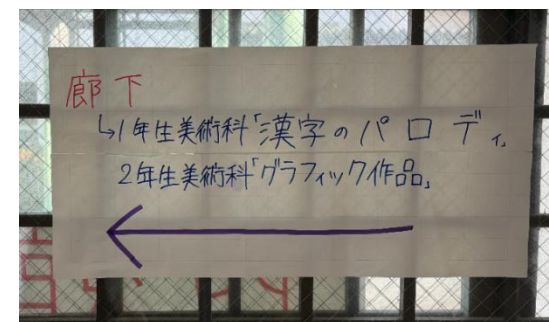 廊下
↳1年生美術科「漢字のパロディ」
2年生美術科「グラフィック作品」